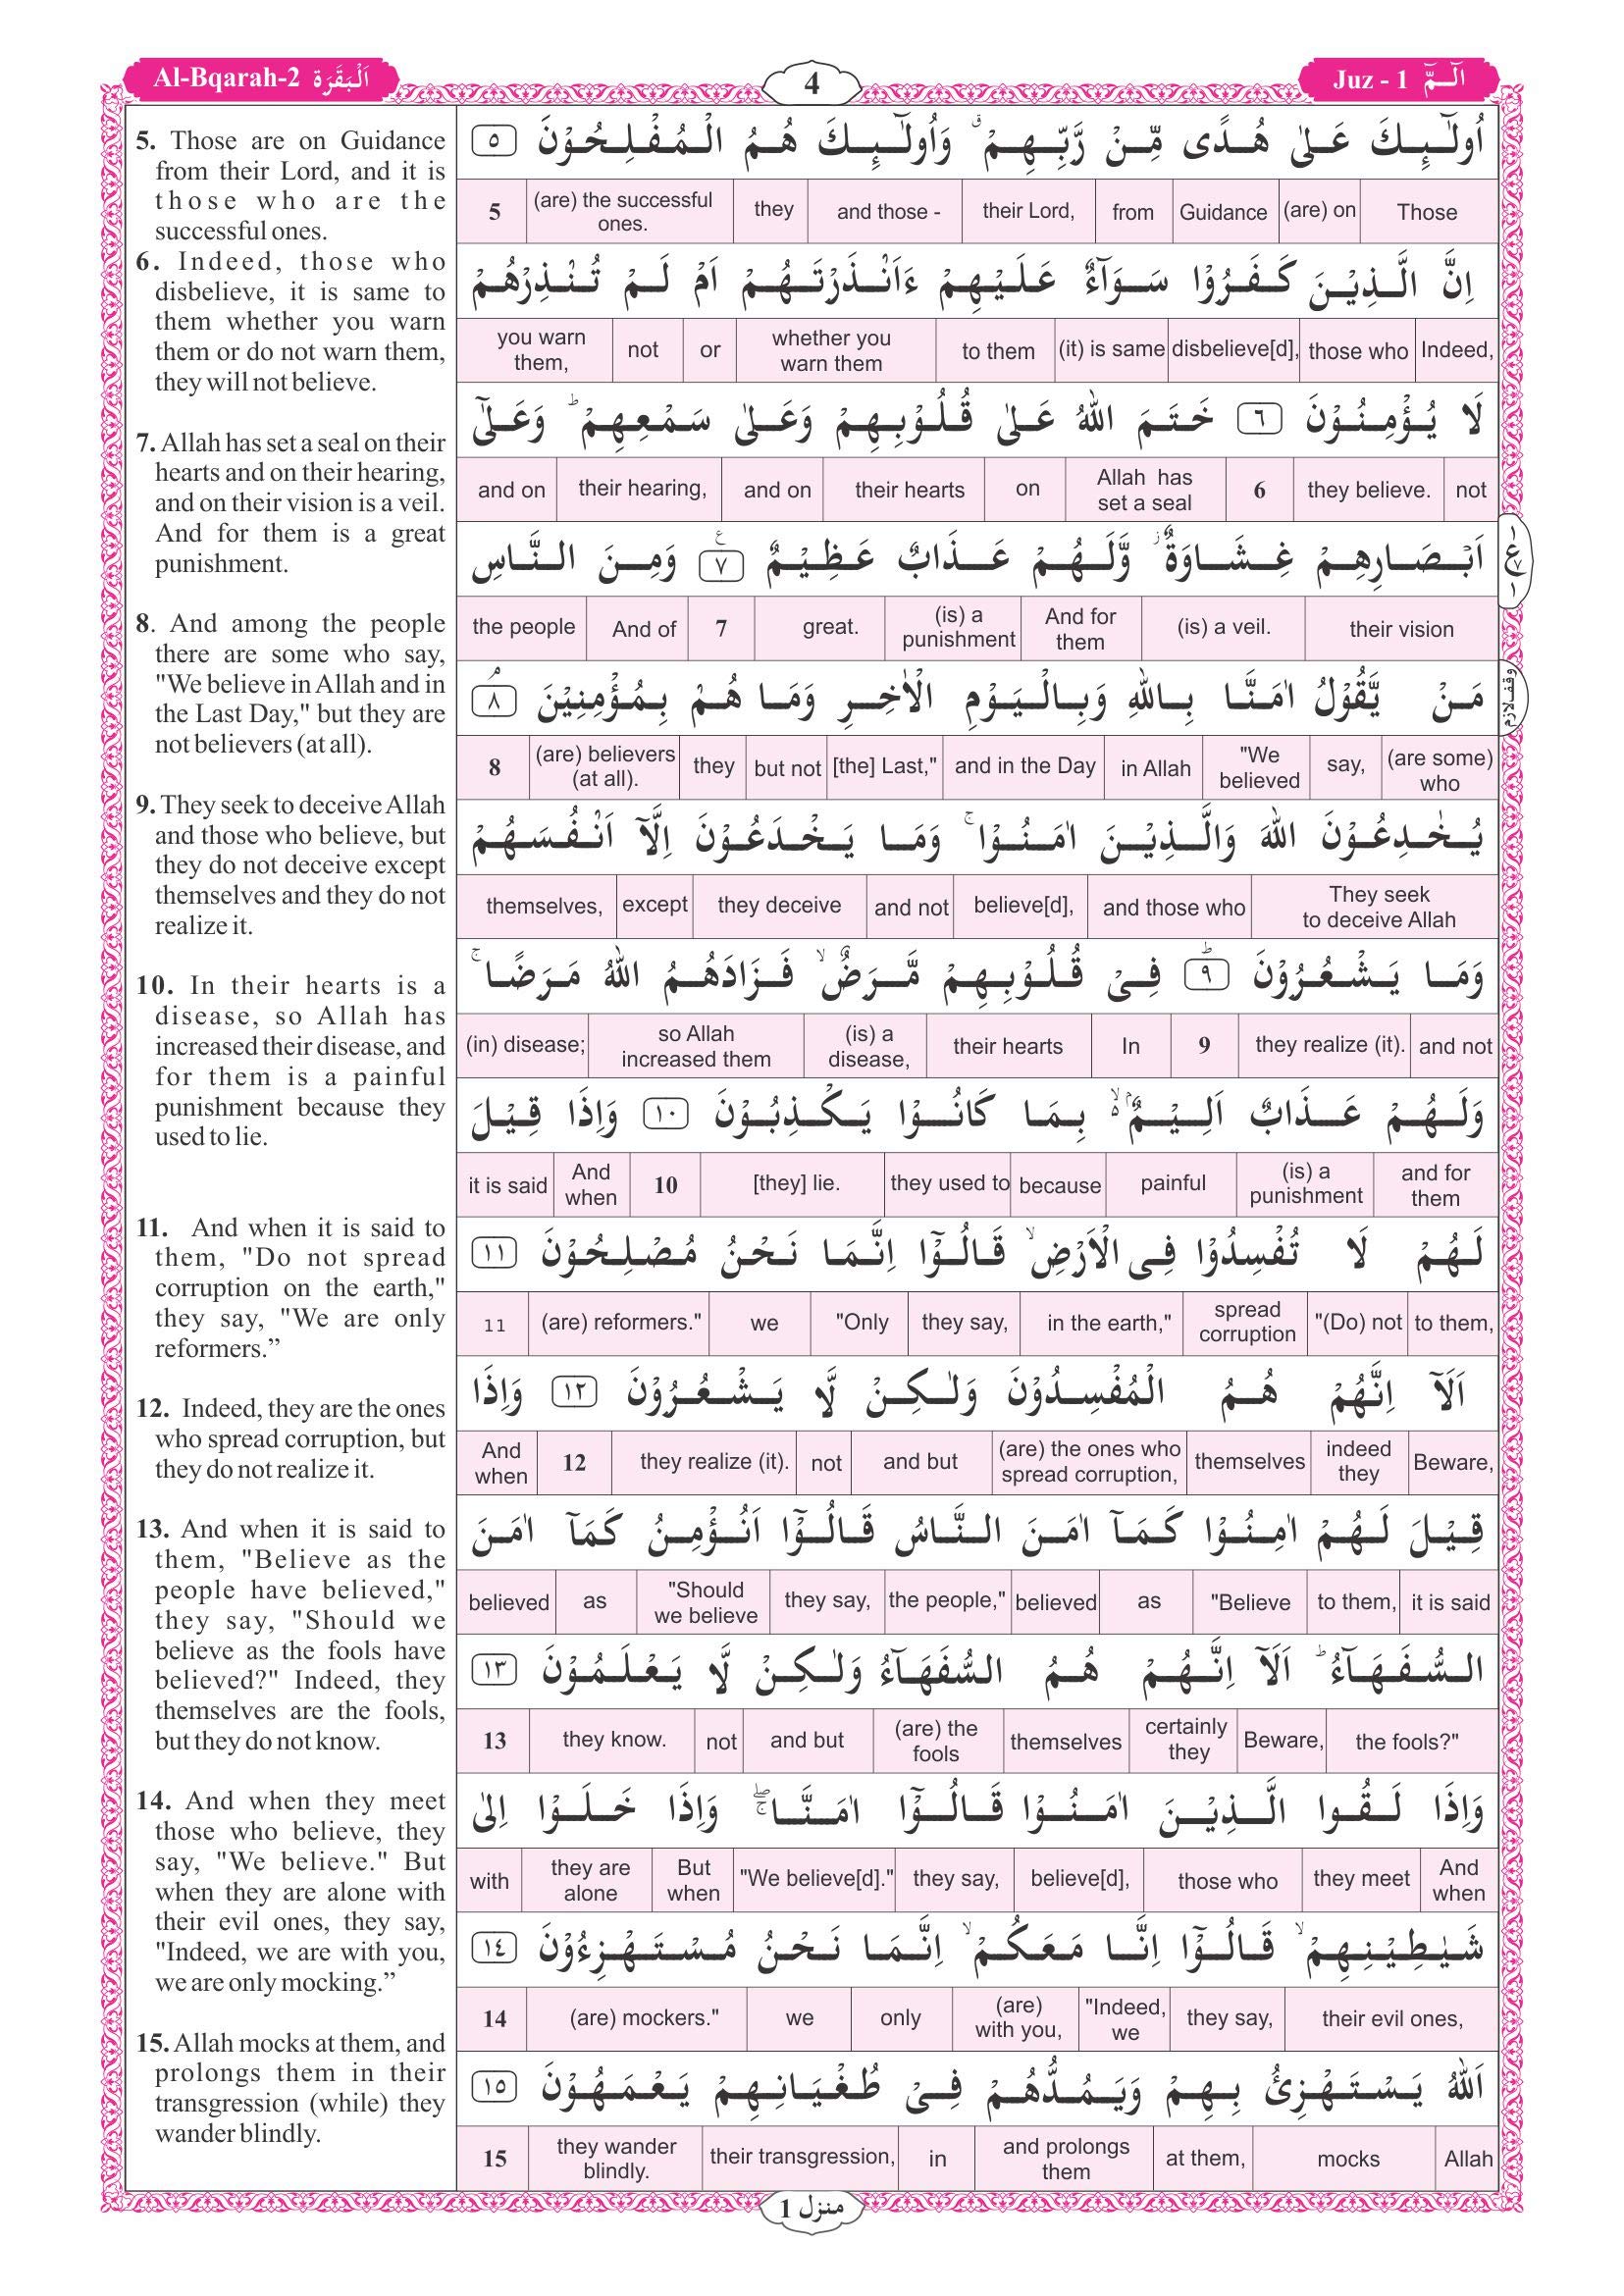 Al-Bqarah-2 اَلْبَقَرَة
4
Juz - 1 الٓـمّٓ
5. Those are on Guidance
from their Lord, and it is
those who are the
successful ones.
6. Indeed, those who
disbelieve, it is same to
them whether you warn
them or do not warn them,
they will not believe.
7. Allah has set a seal on their
hearts and on their hearing,
and on their vision is a veil.
And for them is a great
punishment.
8. And among the people
there are some who say,
"We believe in Allah and in
the Last Day," but they are
not believers (at all).
9. They seek to deceive Allah
and those who believe, but
they do not deceive except
themselves and they do not
realize it.
10. In their hearts is a
disease, so Allah has
increased their disease, and
for them is a painful
punishment because they
used to lie.
11. And when it is said to
them, "Do not spread
corruption on the earth,"
they say, "We are only
reformers.”
12. Indeed, they are the ones
who spread corruption, but
they do not realize it.
13. And when it is said to
them, "Believe as the
people have believed,"
they say, "Should we
believe as the fools have
believed?" Indeed, they
themselves are the fools,
but they do not know.
14. And when they meet
those who believe, they
say, "We believe." But
when they are alone with
their evil ones, they say,
"Indeed, we are with you,
we are only mocking.”
15. Allah mocks at them, and
prolongs them in their
transgression (while) they
wander blindly.
اُولٰٓئِكَ عَلٰى هُدًى مِّنْ رَّبِّهِمْ ۗ وَاُولٰٓئِكَ هُمُ الْمُفْلِحُوْنَ ٥
Those (are) on Guidance from their Lord, and those - they (are) the successful ones. 5
اِنَّ الَّذِيْنَ كَفَرُوْا سَوَآءٌ عَلَيْهِمْ ءَاَنْذَرْتَهُمْ اَمْ لَمْ تُنْذِرْهُمْ
Indeed, those who disbelieve[d], (it) is same to them whether you warn them or not you warn them,
لَا يُؤْمِنُوْنَ ٦ خَتَمَ اللّٰهُ عَلٰى قُلُوْبِهِمْ وَعَلٰى سَمْعِهِمْ ؕ وَعَلٰٓى
not they believe. 6 Allah has set a seal on their hearts and on their hearing, and on
اَبْصَارِهِمْ غِشَاوَةٌ ۫ وَّلَهُمْ عَذَابٌ عَظِيْمٌ ٧ وَمِنَ النَّاسِ
their vision (is) a veil. And for them (is) a punishment great. 7 And of the people
مَنْ يَّقُوْلُ اٰمَنَّا بِاللّٰهِ وَبِالْيَوْمِ الْاٰخِرِ وَمَا هُمْ بِمُؤْمِنِيْنَ ٨
(are some) who say, "We believed in Allah and in the Day [the] Last," but not they (are) believers (at all). 8
يُخٰدِعُوْنَ اللّٰهَ وَالَّذِيْنَ اٰمَنُوْا ۚ وَمَا يَخْدَعُوْنَ اِلَّآ اَنْفُسَهُمْ
They seek to deceive Allah and those who believe[d], and not they deceive except themselves,
وَمَا يَشْعُرُوْنَ ٩ فِيْ قُلُوْبِهِمْ مَّرَضٌ ۙ فَزَادَهُمُ اللّٰهُ مَرَضًا ۚ
and not they realize (it). 9 In their hearts (is) a disease, so Allah increased them (in) disease;
وَلَهُمْ عَذَابٌ اَلِيْمٌ ۢ ۙ بِمَا كَانُوْا يَكْذِبُوْنَ ١٠ وَاِذَا قِيْلَ
and for them (is) a punishment painful because they used to [they] lie. 10 And when it is said
لَهُمْ لَا تُفْسِدُوْا فِى الْاَرْضِ ۙ قَالُوْٓا اِنَّمَا نَحْنُ مُصْلِحُوْنَ ١١
to them, "(Do) not spread corruption in the earth," they say, "Only we (are) reformers." 11
اَلَآ اِنَّهُمْ هُمُ الْمُفْسِدُوْنَ وَلٰكِنْ لَّا يَشْعُرُوْنَ ١٢ وَاِذَا
Beware, indeed they themselves (are) the ones who spread corruption, and but not they realize (it). 12 And when
قِيْلَ لَهُمْ اٰمِنُوْا كَمَآ اٰمَنَ النَّاسُ قَالُوْٓا اَنُؤْمِنُ كَمَآ اٰمَنَ
it is said to them, "Believe as believed the people," they say, "Should we believe as believed
السُّفَهَآءُ ؕ اَلَآ اِنَّهُمْ هُمُ السُّفَهَآءُ وَلٰكِنْ لَّا يَعْلَمُوْنَ ١٣
the fools?" Beware, certainly they themselves (are) the fools and but not they know. 13
وَاِذَا لَقُوا الَّذِيْنَ اٰمَنُوْا قَالُوْٓا اٰمَنَّا ۖۚ وَاِذَا خَلَوْا اِلٰى
And when they meet those who believe[d], they say, "We believe[d]." But when they are alone with
شَيٰطِيْنِهِمْ ۙ قَالُوْٓا اِنَّا مَعَكُمْ ۙ اِنَّمَا نَحْنُ مُسْتَهْزِءُوْنَ ١٤
their evil ones, they say, "Indeed, we (are) with you, only we (are) mockers." 14
اَللّٰهُ يَسْتَهْزِئُ بِهِمْ وَيَمُدُّهُمْ فِيْ طُغْيَانِهِمْ يَعْمَهُوْنَ ١٥
Allah mocks at them, and prolongs them in their transgression, they wander blindly. 15
ع
وقف لازم
منزل 1